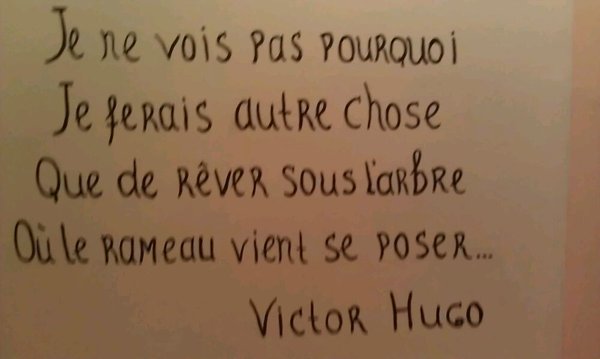 Je ne vois pas pourquoi
Je ferais autre chose
Que de rêver sous l'arbre
Où le rameau vient se poser...
Victor Hugo